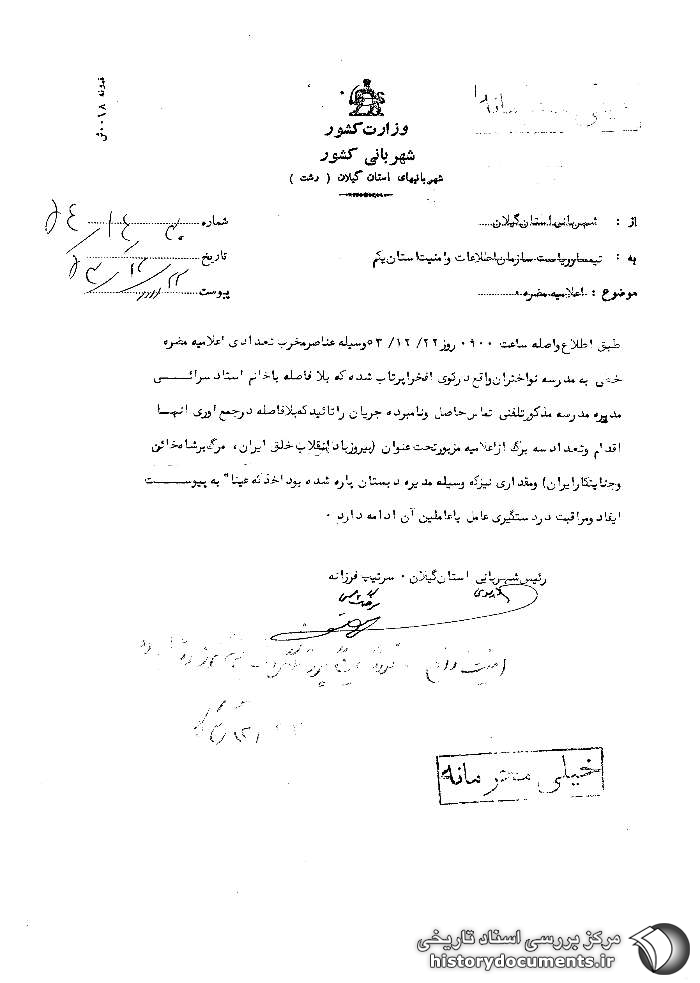 نمونه ۰۰۱۸ش
خیلی محرمانه
وزارت کشور
شهربانی کشور
شهربانیهای استان گیلان ( رشت )
از : شهربانی استان گیلان
شماره
به : تیمسار ریاست سازمان اطلاعات و امنیت استان یکم
تاریخ ۵۳/۱۲/۲۲
موضوع : اعلامیه مضره .
پیوست دارد
طبق اطلاع واصله ساعت ۰۹۰۰ روز ۲۲/ ۱۲/ ۵۳ وسیله عناصر مخرب تعدادی اعلامیه مضره
خطی به مدرسه نواختران واقع در کوی افخرا پرتاب شده که بلا فاصله باخانم استاد سرائی
مدیره مدرسه مذکور تلفنی تماس حاصل ونامبرده جریان را تائید که بلافاصله در جمع اوری انها
اقدام وتعداد سه برگ از اعلامیه مزبور تحت عنوان (پیروز باد انقلاب خلق ایران، مرگ بر شاه خائن
و جنایتکار ایران) ومقداری نیز که وسیله مدیره دبستان پاره شده بود اخذ که عینا" به پیوست
ایفاد ومراقبت در دستگیری عامل یا عاملین آن ادامه دارد .
رئیس شهربانی استان گیلان . سرتیپ فرزانه
خیلی محرمانه
مرکز بررسی اسناد تاریخی
historydocuments.ir